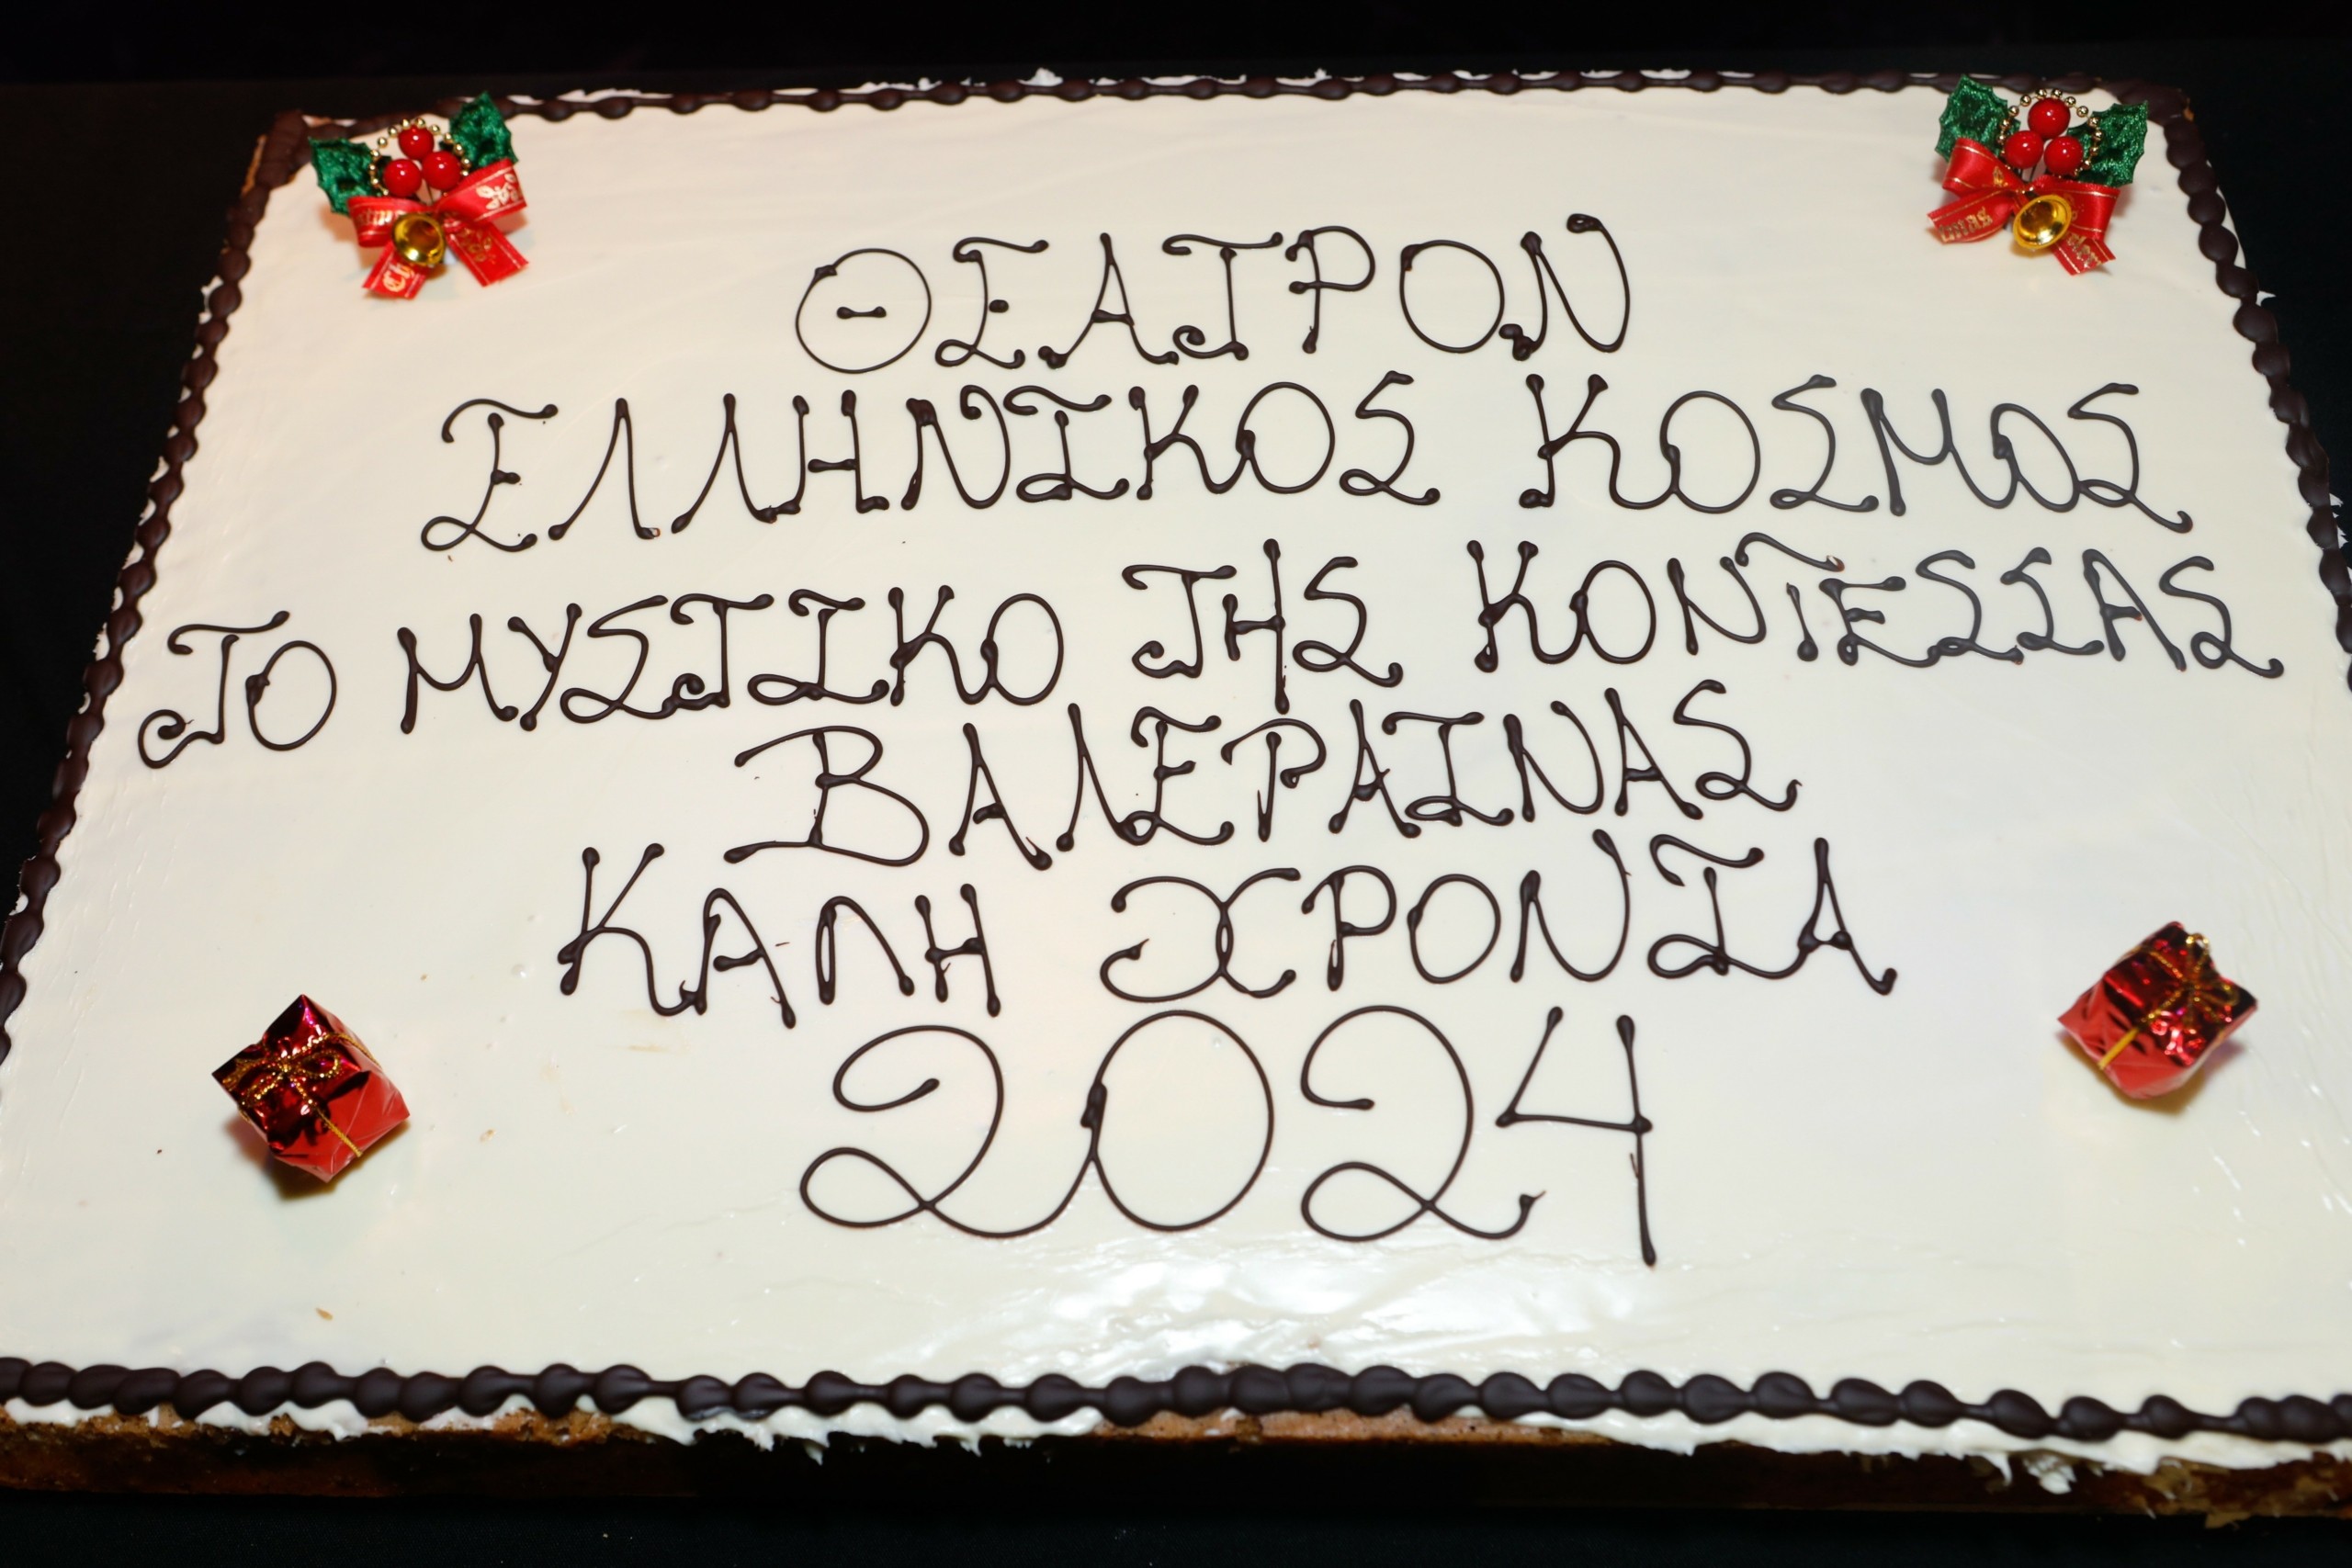 ΘΕΑΤΡΟΝ
ΕΛΛΗΝΙΚΟΣ ΚΟΣΜΟΣ
ΤΟ ΜΥΣΤΙΚΟ ΤΗΣ ΚΟΝΤΕΣΣΑΣ
ΒΑΛΕΡΑΙΝΑΣ
ΚΑΛΗ ΧΡΟΝΙΑ
2024